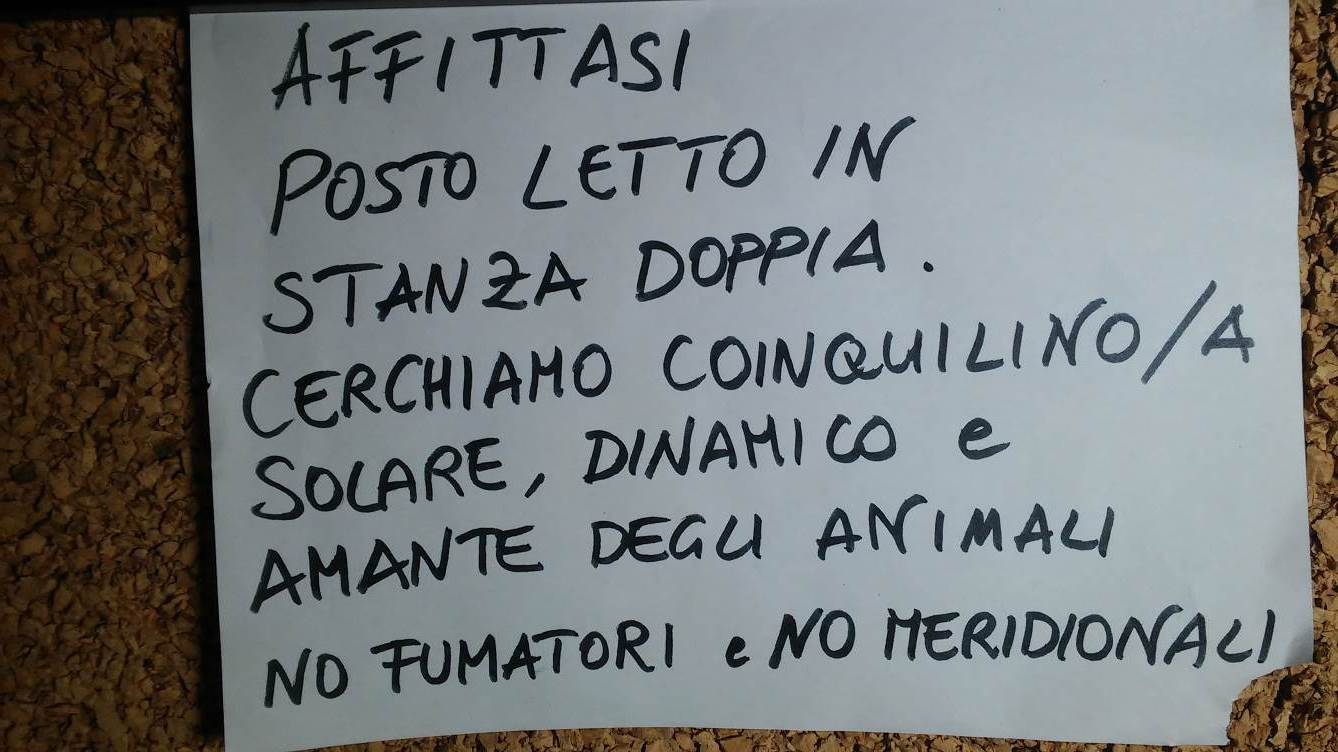 AFFITTASI
POSTO LETTO IN
STANZA DOPPIA.
CERCHIAMO COINQUILINO/A
SOLARE, DINAMICO e
AMANTE DEGLI ANIMALI
NO FUMATORI e NO MERIDIONALI